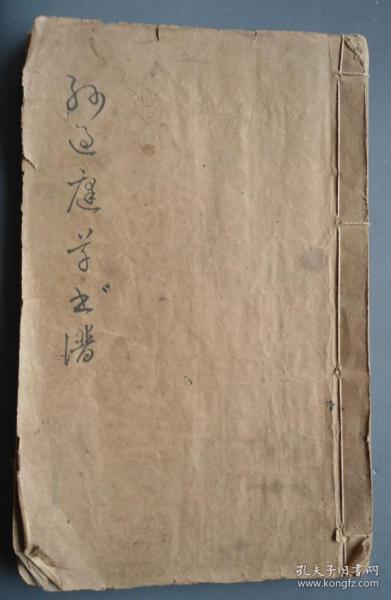 孙过庭草书谱
孔夫子旧书网
www.kongfz.com